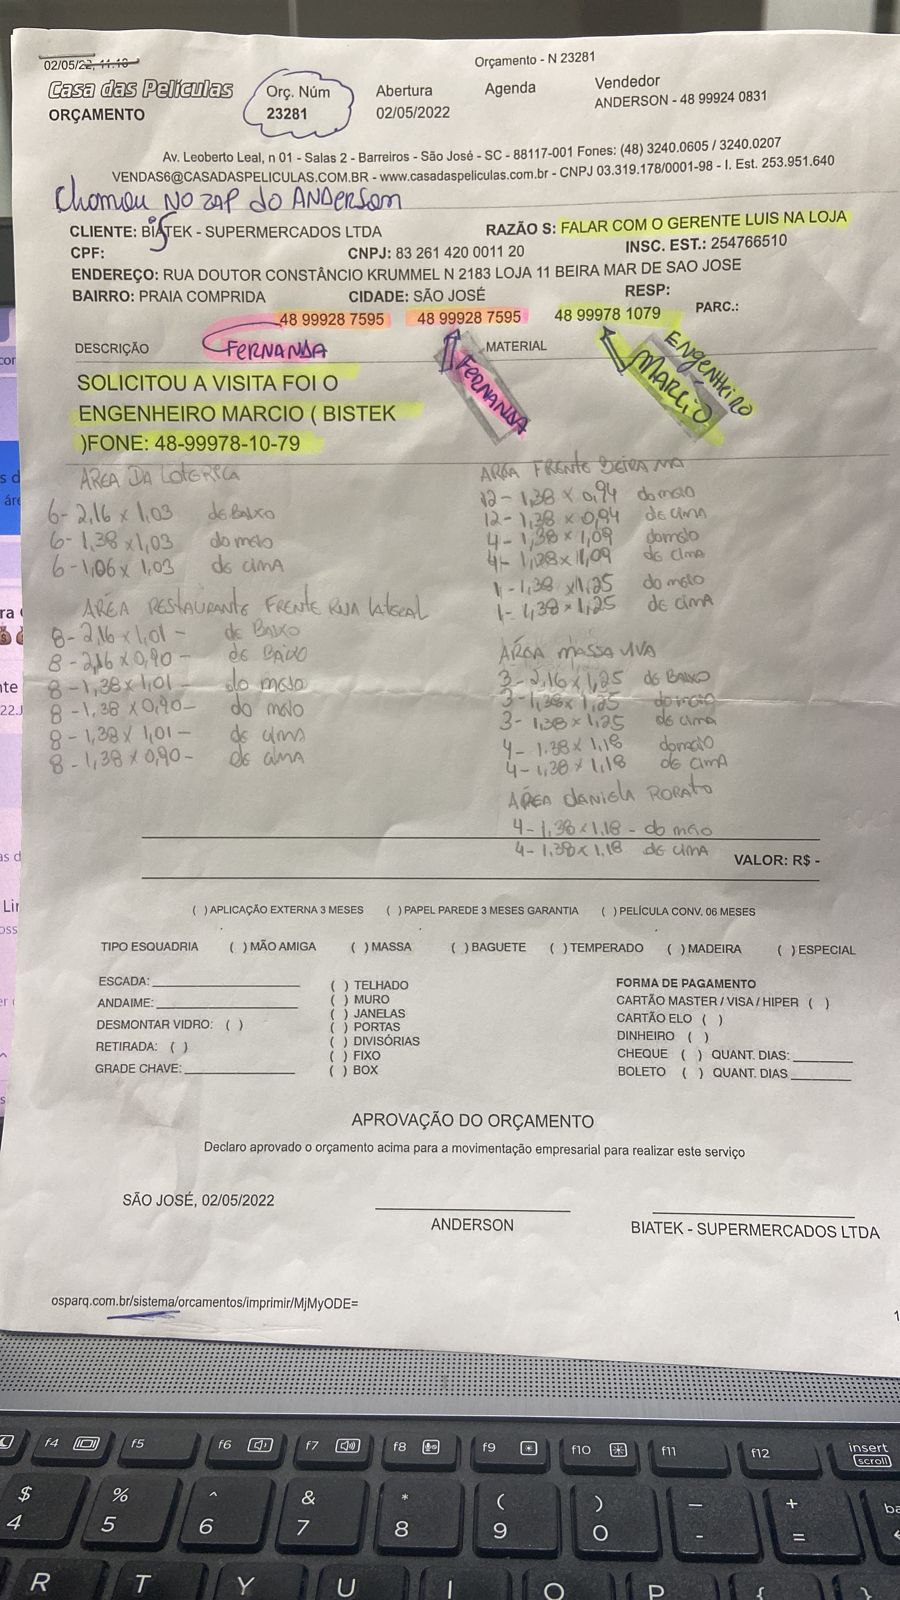 02/05/22, 11:18
Orçamento - N 23281
Casa das Películas
ORÇAMENTO
Orç. Núm
23281
Abertura
02/05/2022
Agenda
Vendedor
ANDERSON - 48 99924 0831
Av. Leoberto Leal, n 01 - Salas 2 - Barreiros - São José - SC - 88117-001 Fones: (48) 3240.0605 / 3240.0207
VENDAS6@CASADASPELICULAS.COM.BR - www.casadaspeliculas.com.br - CNPJ 03.319.178/0001-98 - I. Est. 253.951.640
Chamou NO ZAP do ANDERSON
CLIENTE: BIATEK - SUPERMERCADOS LTDA
S
RAZÃO S: FALAR COM O GERENTE LUIS NA LOJA
CPF:
CNPJ: 83 261 420 0011 20
INSC. EST.: 254766510
ENDEREÇO: RUA DOUTOR CONSTÂNCIO KRUMMEL N 2183 LOJA 11 BEIRA MAR DE SAO JOSE
BAIRRO: PRAIA COMPRIDA
CIDADE: SÃO JOSÉ
RESP:
48 99928 7595
48 99928 7595
48 99978 1079
PARC.:
DESCRIÇÃO
FERNANDA
FERNANDA
MATERIAL
ENGENHEIRO
MARCIO
SOLICITOU A VISITA FOI O
ENGENHEIRO MARCIO ( BISTEK
)FONE: 48-99978-10-79
ÁREA DA LOTERICA
6- 2,16 x 1,03 de BAIXO
6- 1,38 x 1,03 do meio
6- 1,06 x 1,03 de cima
ÁREA RESTAURANTE FRENTE RUA LATERAL
8- 2,16 x 1,01 - de BAIXO
8- 2,16 x 0,90 - de BAIXO
8- 1,38 x 1,01 - do meio
8- 1,38 x 0,90 - do meio
8- 1,38 x 1,01 - de cima
8- 1,38 x 0,90 - de cima
ÁREA FRENTE BEIRA MA
12- 1,38 x 0,94 do meio
12- 1,38 x 0,94 de cima
4- 1,38 x 1,09 do meio
4- 1,38 x 1,09 de cima
1- 1,38 x 1,25 do meio
1- 1,38 x 1,25 de cima
ÁREA MASSA VIVA
3- 2,16 x 1,25 de BAIXO
3- 1,38 x 1,25 do meio
3- 1,38 x 1,25 de cima
4- 1,38 x 1,18 do meio
4- 1,38 x 1,18 de cima
ÁREA DANIELA RORATO
4- 1,38 x 1,18 - do meio
4- 1,38 x 1,18 de cima
VALOR: R$ -
( ) APLICAÇÃO EXTERNA 3 MESES ( ) PAPEL PAREDE 3 MESES GARANTIA ( ) PELÍCULA CONV. 06 MESES
TIPO ESQUADRIA ( ) MÃO AMIGA ( ) MASSA ( ) BAGUETE ( ) TEMPERADO ( ) MADEIRA ( ) ESPECIAL
ESCADA:
ANDAIME:
DESMONTAR VIDRO: ( )
RETIRADA: ( )
GRADE CHAVE:
( ) TELHADO
( ) MURO
( ) JANELAS
( ) PORTAS
( ) DIVISÓRIAS
( ) FIXO
( ) BOX
FORMA DE PAGAMENTO
CARTÃO MASTER / VISA / HIPER ( )
CARTÃO ELO ( )
DINHEIRO ( )
CHEQUE ( ) QUANT. DIAS:
BOLETO ( ) QUANT. DIAS
APROVAÇÃO DO ORÇAMENTO
Declaro aprovado o orçamento acima para a movimentação empresarial para realizar este serviço
SÃO JOSÉ, 02/05/2022
ANDERSON
BIATEK - SUPERMERCADOS LTDA
osparq.com.br/sistema/orcamentos/imprimir/MjMyODE=
f4 f5 f6 f7 f8 f9 f10 f11 f12 insert
scroll
$ % ^ & * ( ) — +
4 5 6 7 8 9 0 - =
R T Y U I O P { }